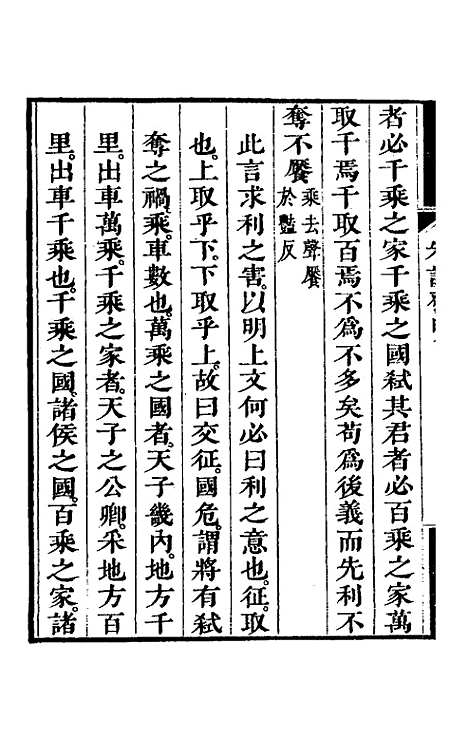 者必千乘之家千乘之國弒其君者必百乘之家萬
取千焉千取百焉不爲不多矣苟爲後義而先利不
奪不饜乘去聲饜
於豔反
此言求利之害。以明上文何必曰利之意也。征。取
也。上取乎下。下取乎上。故曰交征。國危。謂將有弒
奪之禍。乘。車數也。萬乘之國者。天子畿內。地方千
里。出車萬乘。千乘之家者。天子之公卿。采地方百
里。出車千乘也。千乘之國。諸侯之國。百乘之家。諸